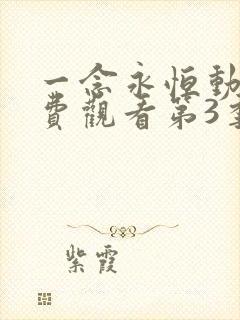 一念永恒動
費觀看第3季
紫霞